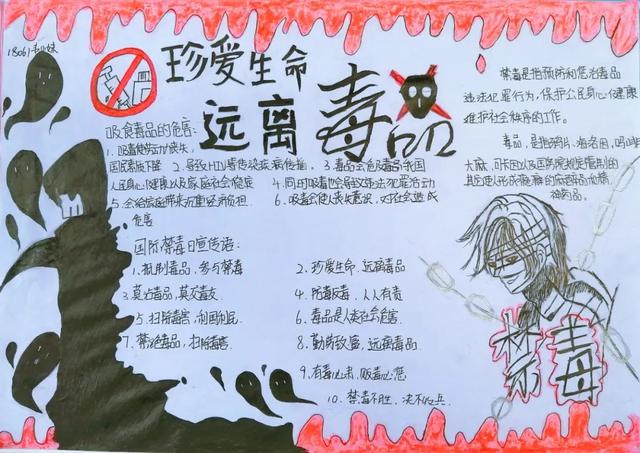 珍爱生命
远离毒品
吸食毒品的危害:
国民素质下降 2.导致HIV等传染疾病传播. 3.毒品会危及毒品我国
人民身心健康以及家庭社会稳定 4.同时吸毒也会导致违法犯罪活动
5.会给家庭带来沉重经济负担 6.吸毒会使人丧失意识,对社会造成
危害
国际禁毒日宣传语:
1.抵制毒品,参与禁毒
2.珍爱生命.远离毒品
3.莫沾毒品,莫交毒友.
4.防毒反毒,人人有责
5.扫除毒害,利国利民.
6.毒品是人类社会危害.
7.禁绝毒品,扫除毒害.
8.勤劳致富,远离毒品
9.有毒必肃.贩毒必惩
10.禁毒不胜.决不收兵.
禁毒是指预防和惩治毒品
违法犯罪行为,保护公民身心健康
维护社会秩序的工作.
毒品,是指鸦片、海洛因、吗啡
大麻,可卡因以及国际规定管制的
其它使人形成瘾癖的麻醉药品和精
神药品.
禁毒